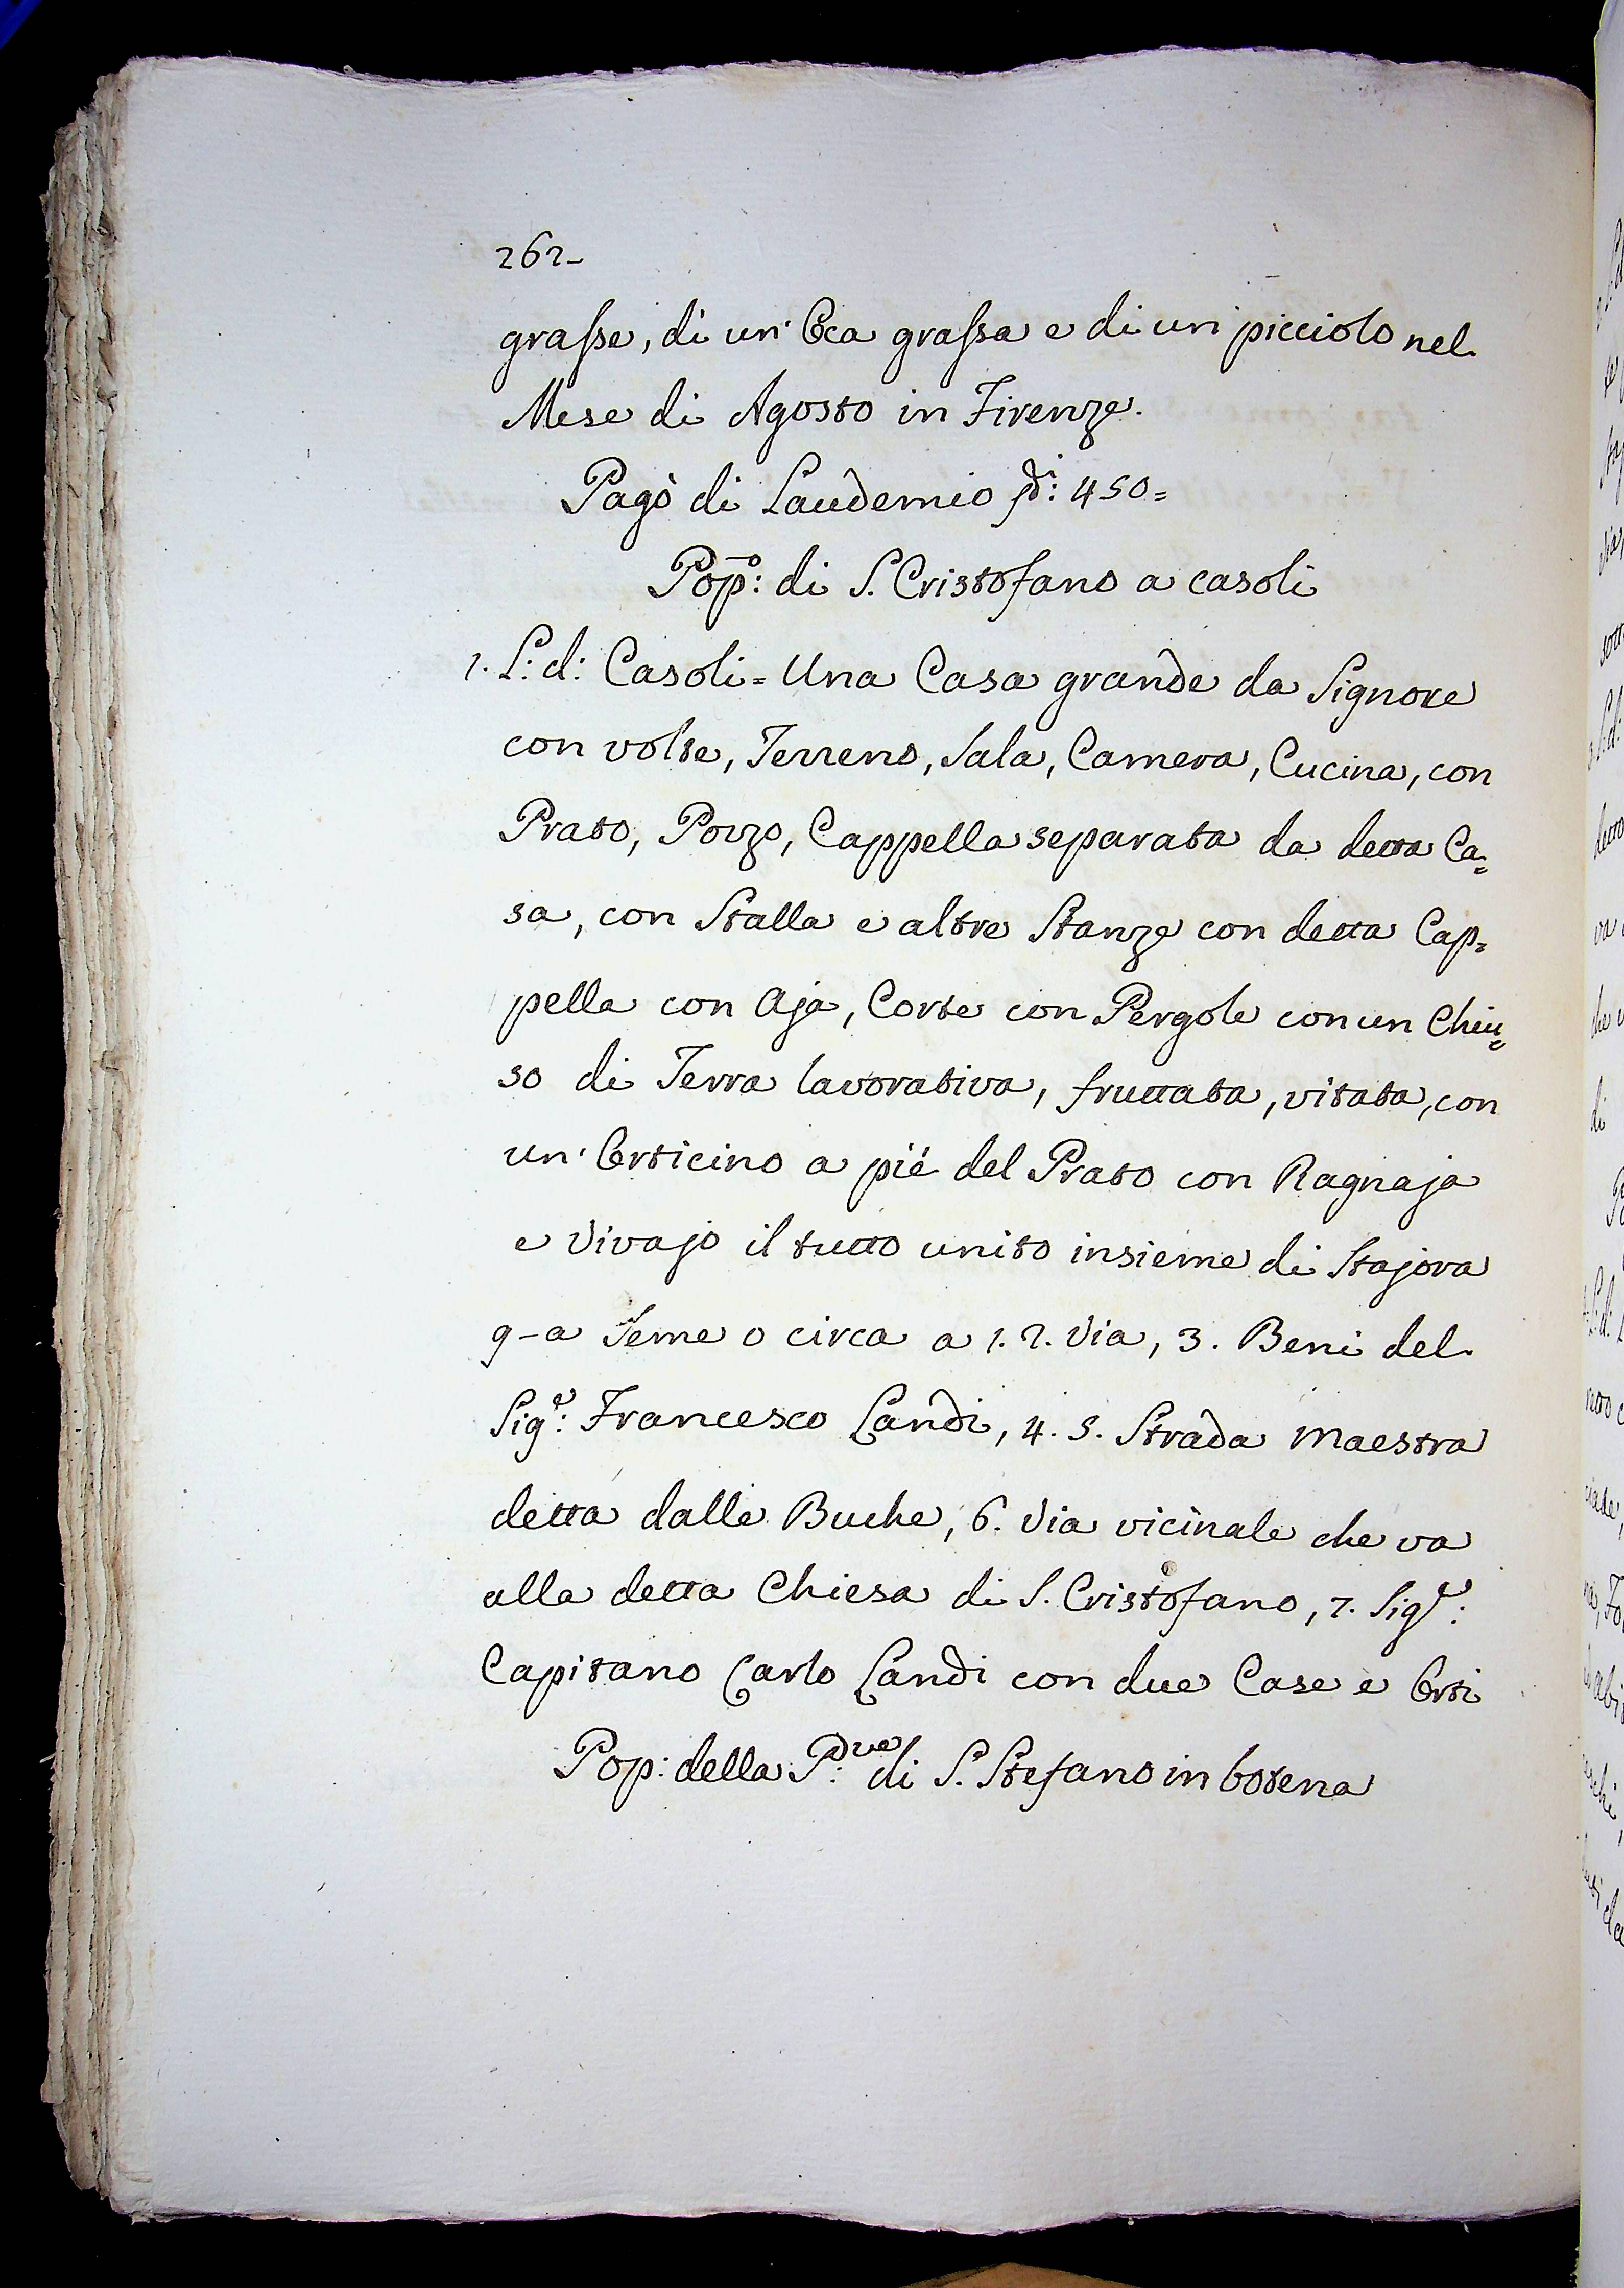 262-
grasse, di un' Oca grassa e di un picciolo nel
Mese di Agosto in Firenze.
Pagò di Laudemio 450=
Popo: di S. Cristofano a casoli
1. L: d: Casoli = Una Casa grande da Signore
con volte, Terreno, Sala, Camera, Cucina, con
Prato, Pozzo, Cappella separata da detta Ca=
sa, con Stalla e altre Stanze con detta Cap=
pella con Aja, Corte con Pergole con un Chiu=
so di Terra lavorativa, fruttata, vitata, con
un' Orticino a piè del Prato con Ragnaja
e Vivajo il tutto unito insieme di Stajora
9-a Seme o circa a 1. 2. Via, 3. Beni del
Sige: Francesco Landi, 4. 5. Strada Maestra
detta dalle Buche, 6. Via vicinale che va
alla detta Chiesa di S. Cristofano, 7. Sige:
Capitano Carlo Landi con due Case e Orti
Pop: della P:ve di S. Stefano in botena